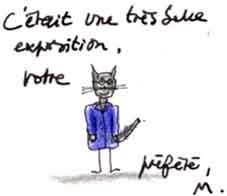 C'était une très belle
exposition,
votre
préféré,
M.